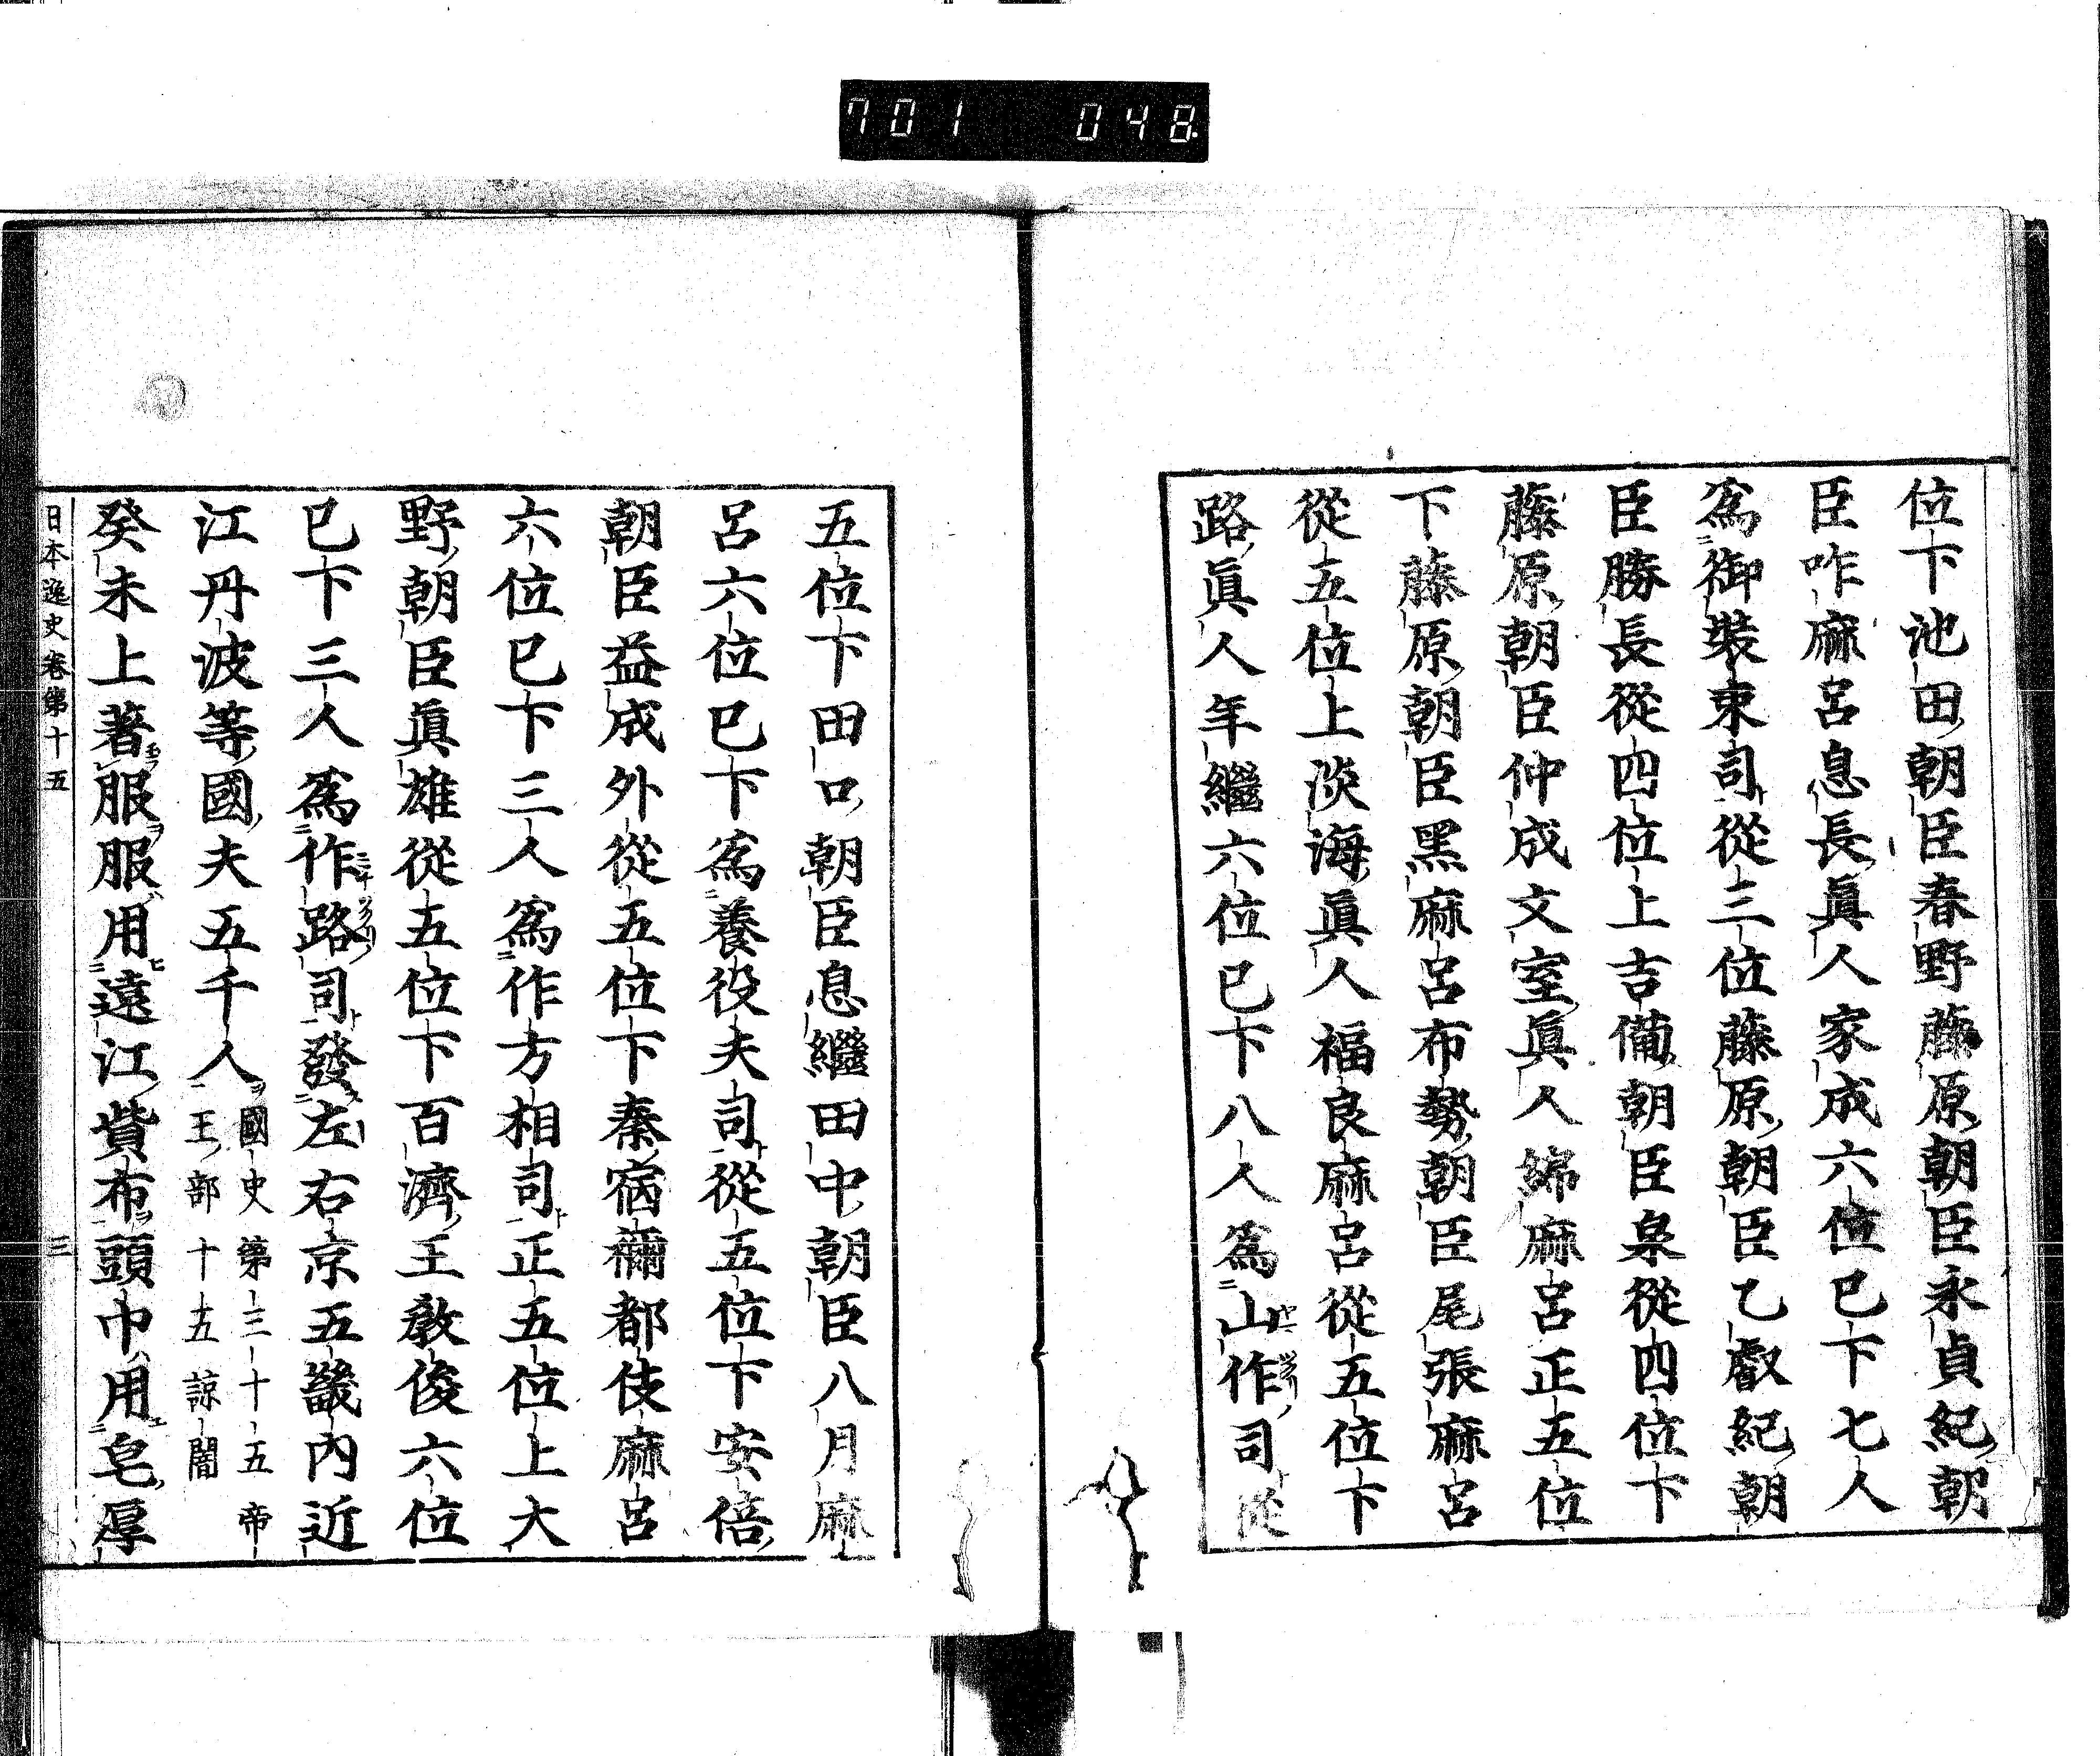 701 048
位下池田朝臣春野藤原朝臣永貞紀朝
臣咋麻呂息長眞人家成六位已下七人
爲御裝束司從三位藤原朝臣乙叡紀朝
臣勝長從四位上吉備朝臣泉從四位下
藤原朝臣仲成文室眞人綿麻呂正五位
下藤原朝臣黑麻呂布勢朝臣尾張麻呂
從五位上淡海眞人福良麻呂從五位下
路眞人年繼六位已下八人爲山作司從
五位下田口朝臣息繼田中朝臣八月麻
呂六位已下爲養役夫司從五位下安倍
朝臣益成外從五位下秦宿禰都伎麻呂
六位已下三人爲作方相司正五位上大
野朝臣眞雄從五位下百濟王敎俊六位
已下三人爲作路司發左右京五畿內近
江丹波等國夫五千人國史第三十五帝
王部十五諒闇
癸未上著服服用遠江貲布頭巾用皂厚
日本逸史卷第十五 三